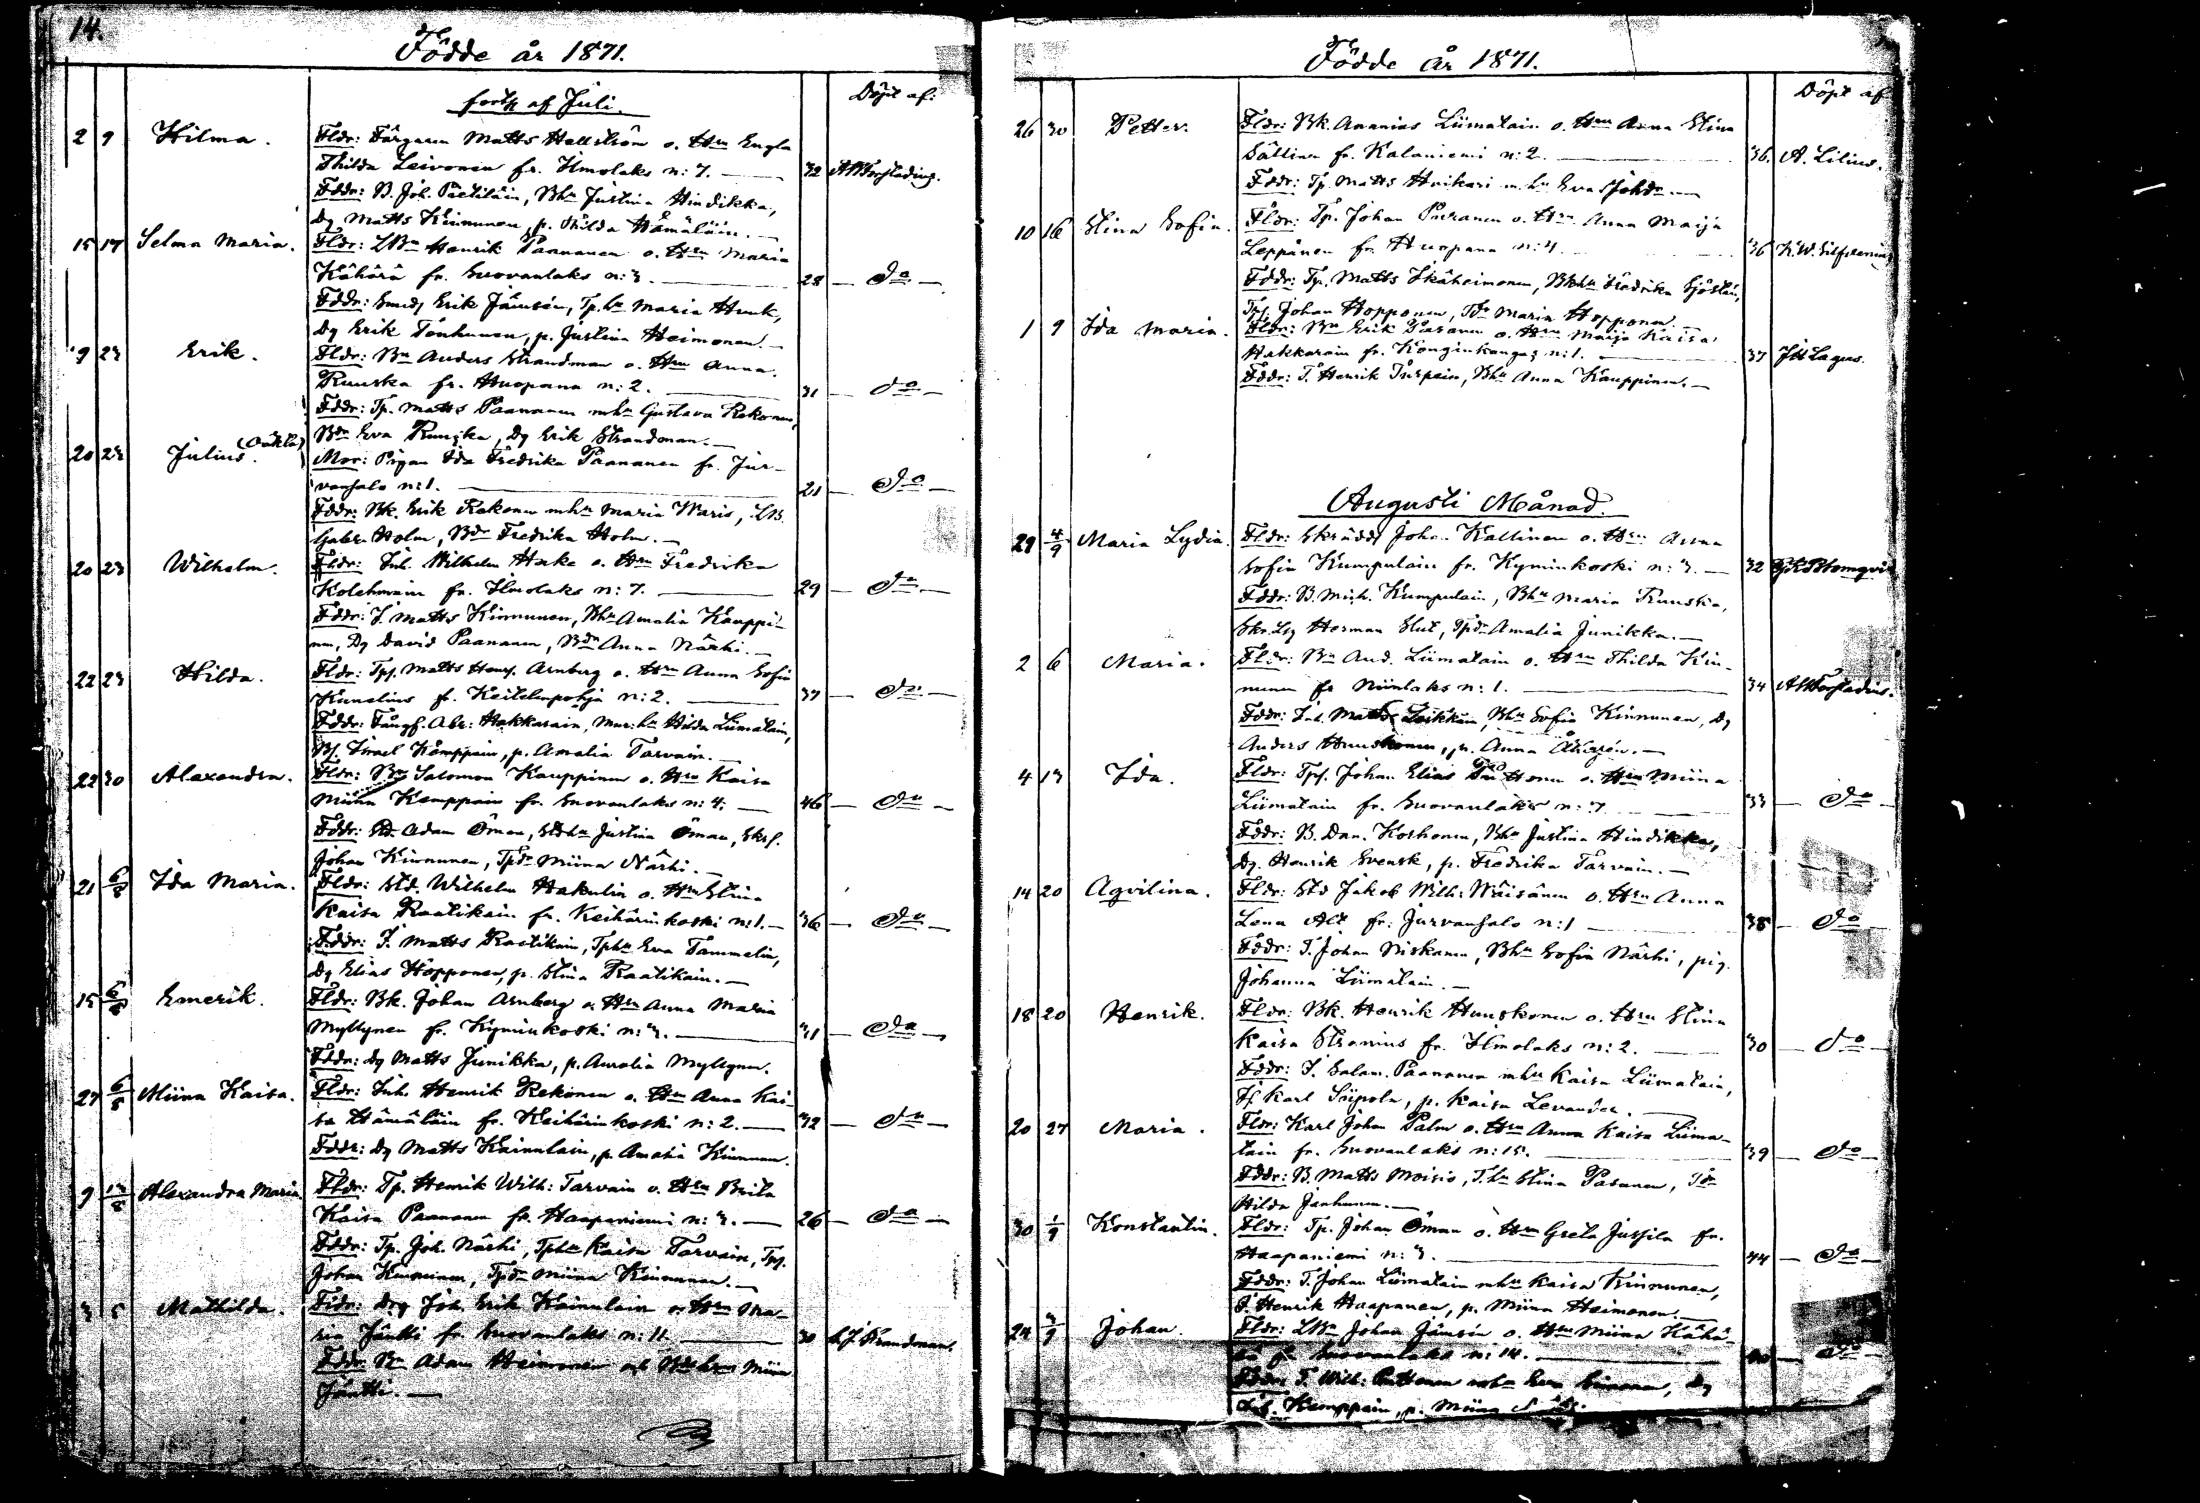 14.
Födde år 1871.
forts. af Juli.
Döpt af:
2 9 Hilma. Fldr: Färgaren Matts Hallström o. Hru Engla
Thilda Leivonen fr. Ilmolaks n: 7. — 32
Fddr: B. Joh. Pöctiläin, Bhu Justina Hindikka,
Dg Matts Kinnunen, p. Thilda Hämäläin. —
15 17 Selma Maria. Fldr: LBn Henrik Paananen o. Hru Maria
Kähärä fr. Suovanlaks n: 3. — 28 — do —
Fddr: Smedj Erik Jämsén, Tp. hu Maria Hunk,
Dg Erik Tenhunen, p. Justina Heimonen. —
9 23 Erik. Fldr: Bn Anders Strandman o. Hru Anna
Ruuska fr. Huopana n: 2. — 31 — do —
Fddr: Tp. Matts Paananen mhu Gustava Rekonen,
Bdr Eva Ruuska, Dg Erik Strandman. —
20 23 Julius (oäkta). Mor: Pigan Ida Fredrika Paananen fr. Jur-
vansalo n: 1. — 21 — do —
Fddr: Bk. Erik Rekonen mhu Maria Waris, LB.
Gabr. Holm, Bdr Fredrika Holm. —
20 23 Wilhelm. Fldr: Inh. Wilhelm Hake o. Hru Fredrika
Kolehmain fr. Ilmolaks n: 7. — 29 — do —
Fddr: I. Matts Kinnunen, Bhu Amalia Kauppi-
nen, Dg David Paananen, Bdr Anna Närhi. —
22 23 Hilda. Fldr: Tps. Matts Henr. Arnberg o. Hru Anna Sofia
Kunelius fr. Keitelepohja n: 2. — 37 — do —
Fddr: Fångf. Abr: Hakkarain, Mur. hu Hilda Liimatain,
Bs. Israel Kemppain, p. Amalia Tarvain. —
22 30 Alexandra. Fldr: Bn Salomon Kauppinen o. Hru Kaisa
Miina Kemppain fr. Suovanlaks n: 4. — 46 — do —
Fddr: Sld. Adam Öman, Sldhu Justina Öman, Skrs.
Johan Kinnunen, Tpdr Miina Närhi. —
21 6/8 Ida Maria. Fldr: Sld. Wilhelm Hakulin o. Hru Stina
Kaisa Raatikain fr. Keihärinkoski n: 1. — 36 — do —
Fddr: I. Matts Raatikain, Tphu Eva Tammelin,
Dg Elias Hopponen, p. Stina Raatikain. —
15 6/8 Emerik. Fldr: Bk. Johan Arnberg o. Hru Anna Maria
Myllynen fr. Kyminkoski n: 3. — 31 — do —
Fddr: Dg Matts Junikka, p. Aurolia Myllynen.
27 6/8 Miina Kaisa. Fldr: Inh. Henrik Rekonen o. Hru Anna Kai-
sa Hämäläin fr. Keihärinkoski n: 2. — 32 — do —
Fddr: Dg Matts Kainulain, p. Amalia Kinnunen.
9 13/8 Alexandra Maria. Fldr: Tp. Henrik Wilh: Tarvain o. Hru Brita
Kaisa Paananen fr. Haapaniemi n: 3. — 26 — do —
Fddr: Tp. Joh. Närhi, Tphu Kaisa Tarvain, Tps.
Johan Kinnunen, Tpdr Miina Kinnunen. —
3 5 Mathilda. Fldr: Drg Joh. Erik Kainulain o. Hru Ma-
ria Jäntti fr. Suovanlaks n: 11. — 30
Fddr: Bn Adam Heimonen Miina
Jäntti. —
Födde år 1871.
Döpt af
26 30 Petter. Fldr: Bk. Ananias Liimatain o. Hru Anna Stina
Sällinen fr. Kalaniemi n: 2. — 36. A. Lilius.
Fddr: Tp. Matts Huikari m. hu Eva Sjöhdr. —
10 16 Stina Sofia. Fldr: Tp. Johan Puranen o. Hru Anna Maija
Leppänen fr. Huopana n: 4. 36
Fddr: Tp. Matts Ikäheimonen, Bkhu Fredrika Sjöstén,
Tps. Johan Hopponen, Tdr Maria Hopponen. —
1 9 Ida Maria. Fldr: Bn Erik Pasanen o. Hru Maija Kaisa
Hakkarain fr. Konginkangas n: 1. — 37 JH Lagus.
Fddr: T. Henrik Turpein, Bhu Anna Kauppinen. —
Augusti Månad.
29 4/9 Maria Lydia. Fldr: Skrädd. Johan Kallinen o. Hru Anna
Sofia Kumpulain fr. Kyminkoski n: 3. — 32
Fddr: B. Mich. Kumpulain, Bhu Maria Ruuska,
Skr. Lsg Herman Slut, Tpdr Amalia Junikka. —
2 6 Maria. Fldr: Bn And. Liimatain o. Hru Thilda Kin-
nunen fr. Niinilaks n: 1. — 34
Fddr: Inh. Matts Leikkain, Bhu Sofia Kinnunen, Dg
Anders Huuskonen, p. Anna Åkerén. —
4 13 Ida. Fldr: Tps. Johan Elias Puttonen o. Hru Miina
Liimatain fr. Suovanlaks n: 7 33 — do —
Fddr: B. Dan. Korhonen, Bhu Justina Hindikka,
Dg. Henrik Svensk, p. Fredrika Tarvain. —
14 20 Aqvilina. Fldr: Sld Jakob Wilh: Wäisänen o. Hru Anna
Lena Alt fr. Jurvansalo n: 1 — 38 — do —
Fddr: T. Johan Niskanen, Bhu Sofia Närhi, pig.
Johanna Liimatain. —
18 20 Henrik. Fldr: Bk. Henrik Huuskonen o. Hru Stina
Kaisa Stranius fr. Ilmolaks n: 2. — 30 — do —
Fddr: I. Salam. Paananen mhu Kaisa Liimatain,
If. Karl Siipola, p. Kaisa Levander. —
20 27 Maria. Fldr: Karl Johan Palm o. Hru Anna Kaisa Liima-
tain fr. Suovanlaks n: 15. — 39 — do —
Fddr: B. Matts Moisio, T. hu Stina Pasanen, Tdr
Hilda Janhunen. —
30 1/9 Konstantin. Fldr: Tp. Johan Öman o. Hru Greta Jussila fr.
Haapaniemi n: 3. — 44 — do —
Fddr: T. Johan Liimatain mhu Kaisa Kinnunen,
I. Henrik Haapanen, p. Miina Heimonen. —
24 3/9 Johan. Fldr: LBn Johan Jämsén o. Hru Miina Kähä-
rä fr. Suovanlaks n: 14. — do —
Fddr: T. Wilh: Puttonen mhu Eva, Dg
Kemppain, p. Miina